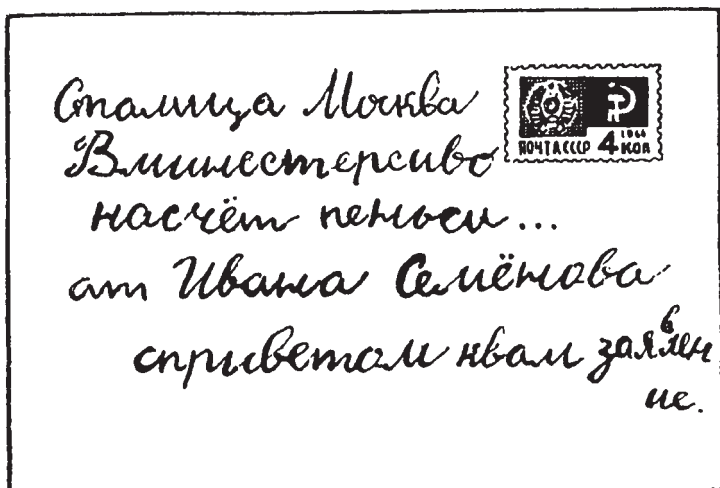 Сталица Москва
Вминестерсиво
насчёт пеньси...
от Ивана Семёнова
сприветом квам заявлен
ие.
1966
ПОЧТА СССР 4 КОП